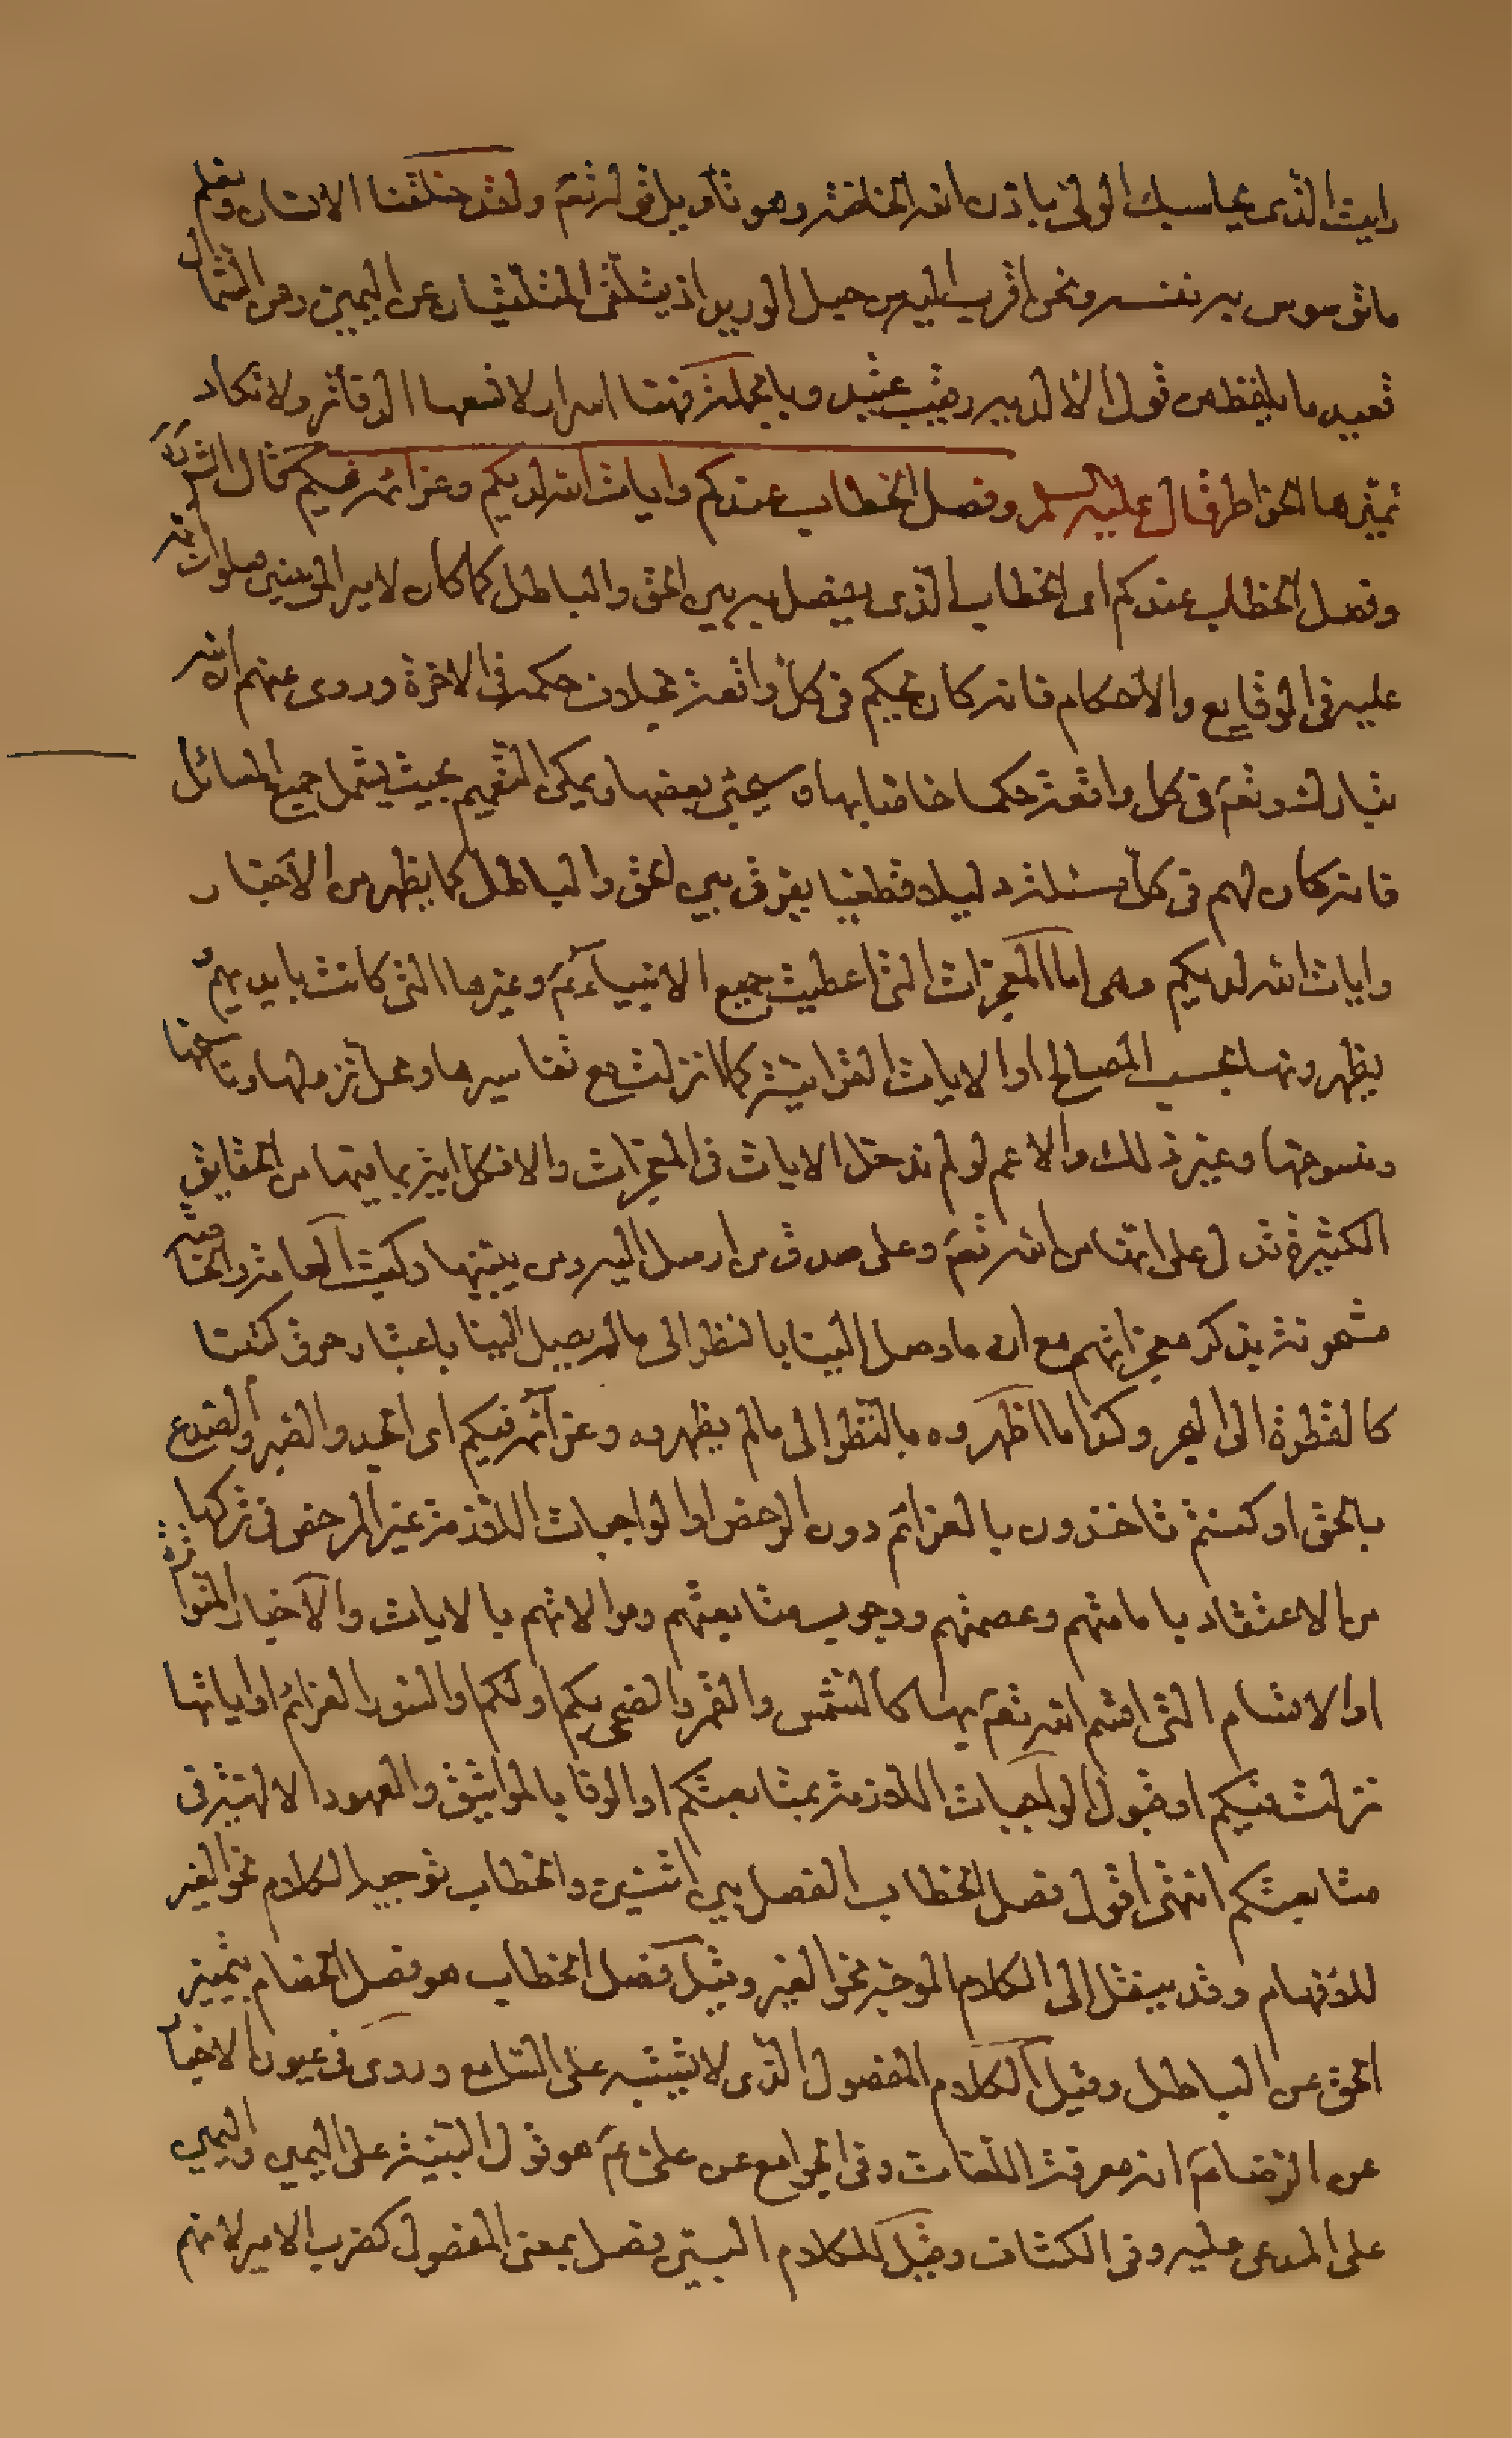 رايت الذى يحاسبك الولى باذن الله الخاصة وهو تاويل قوله تعم ولقد خلقنا الانسان ونعلم
ما توسوس به نفسه ونحن اقرب اليه من حبل الوريد اذ يتلقى المتلقيان عن اليمين وعن الشمال
قعيد ما يلفظ من قول الا لديه رقيب عتيد وبالجملة فهنا اسرار لا تسعها الدفاتر ولا تكاد
تميزها الخواطر قال عليه السلم وفصل الخطاب عندكم وايات الله لديكم وعزائمه فيكم قال الشرح
وفصل الخطاب عندكم اى الخطاب الذى يفصل به بين الحق والباطل كما كان لامير المؤمنين صلوات الله
عليه فى الوقايع والاحكام فانه كان يحكم فى كل واقعة بخلاف حكمه فى الاخرة وروى عنهم ان لله
تبارك وتعم فى كل واقعة حكما خاصا بها وسيجئ بعضها ويمكن التعميم بحيث يشمل جميع المسائل
فانه كان لهم فى كل مسئلة دليلا قطعيا يفرق بين الحق والباطل كما يظهر من الاخبار
وايات الله لديكم وهى اما المعجزات التى اعطيت جميع الانبياء عم وغيرها التى كانت بايديهم
يظهرونها بحسب المصالح او الايات القرانية كما انزلت مع تفاسيرها ومحل نزولها وناسخها
ومنسوخها وغير ذلك والاعم لو لم ندخل الايات فى المعجزات والا فكل اية بما فيها من الحقايق
الكثيرة تدل على انها من الله تعم وعلى صدق من ارسل اليه ومن يبينها وكتب العامة والخاصة
مشحونة بذكر معجزاتهم مع ان ما وصل الينا بالنظر الى ما لم يصل الينا باعتبار حرق كتبنا
كالقطرة الى البحر وكذا ما اظهروه بالنظر الى ما لم يظهروه وعزائمه فيكم اى الجد والصبر والصدع
بالحق او كنتم تاخذون بالعزائم دون الرخص او الواجبات اللازمة غير المرخص فى تركها
من الاعتقاد بامامتهم وعصمتهم ووجوب متابعتهم وموالاتهم بالايات والاخبار المتواترة
او الاقسام التى اقسم الله تعم بها كالشمس والقمر والضحى بكم او لكم او السور العزائم او اياتها
نزلت فيكم او قبول الواجبات اللازمة بمتابعتكم او الوفا بالمواثيق والعهود الالهية فى
متابعتكم انتهى اقول فصل الخطاب الفصل بين اثنين والخطاب توجيه الكلام نحو الغير
للافهام وقد ينقل الى الكلام الموجه نحو الغير وقيل فصل الخطاب هو فصل الخصام بتمييز
الحق عن الباطل وقيل الكلام المفصول الذى لا يشتبه على السامع وروى فى عيون الاخبار
عن الرضا عم انه معرفة اللغات وفى الجوامع عن على عم هو قول البينة على المدعى واليمين
على المدعى عليه وفى الكشاف وقيل للكلام البين فصل بمعنى المفصول كضرب الامير لانهم